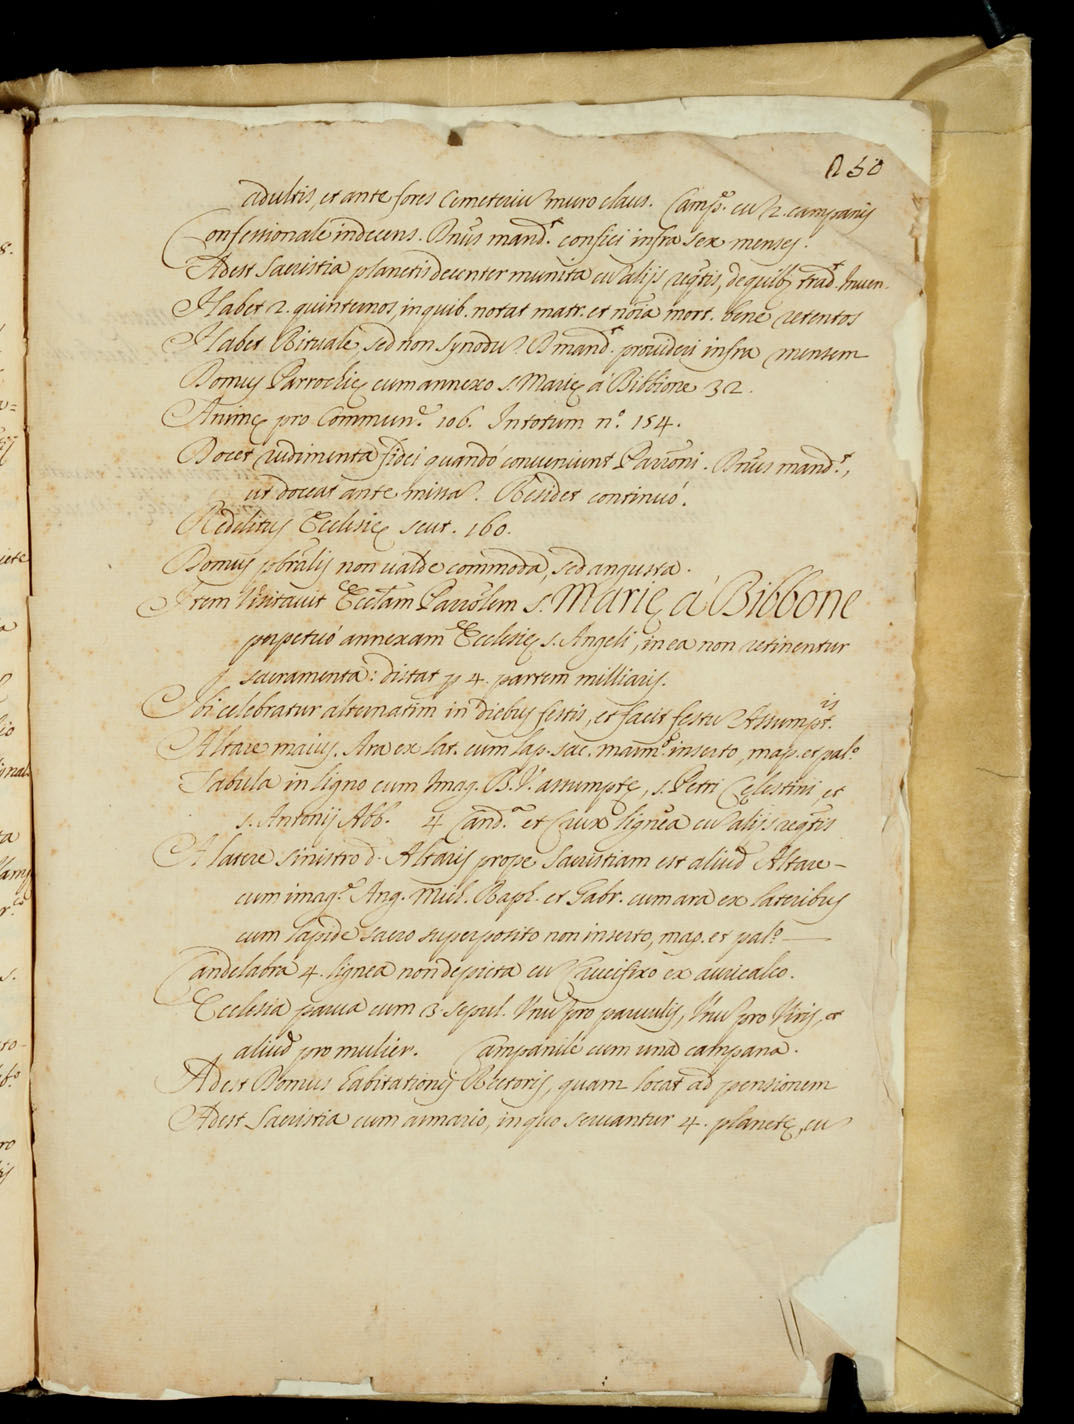 250
adultis, et ante fores Cemeteriũ muro claus. Camp.e cũ 2. campanis
Confessionale indecens. Dñus mand.t confici infra sex menses.
Adest Sacristia planetis decenter munita cũ alijs reqtis, de quib. trad.t Inven.
Habet 2. quinternos, in quib. notat matr. et nõia mort. bene retentos
Habet Rituale, sed non Synodũ. D mand.t provideri infra mensem
Domus Parrochię cum annexo s. Marię á Bibbone 32.
Animę pro Commun.e 106. In totum n.o 154.
Docet rudimenta fidei quandó conveniunt Parroñi. Dñus mand.t,
ut doceat ante missã. Residet continuó.
Redditus Ecclesię scut. 160.
Domus pbralis non valde commoda, sed angusta.
Item Visitavit Ecclãm Parrõlem s. Marię á Bibbone
perpetuó annexam Ecclesię s. Angeli, in ea non retinentur
sacramenta: distat p 4. partem milliaris.
Ibi celebratur alternatim in diebus festis, et facit festũ Assumpt.is
Altare maius. Ara ex lat. cum lap. sac. marm.o inserto, map. et pal.o
Tabula in ligno cum Imag. B. V. assumptę, s. Petri Cęlestini, et
s. Antonij Abb. 4 Cand.a et Crux lignea cũ alijs reqtis
A latere sinistro d. Altaris prope Sacristiam est aliud Altare -
cum imag.e Ang. Mich. Raph. et Gabr. cum ara ex lateribus
cum lapide sacro superposito non inserto, map. et pal.o —
Candelabra 4. lignea non depicta cũ Crucifixo ex auricalco.
Ecclesia parva cum 3 sepul. Unũ pro parvulis, Unũ pro Viris, et
aliud pro mulier. Campanile cum una campana.
Adest Domus habitationis Rectoris, quam locat ad pensionem
Adest Sacristia cum armario, in quo servantur 4. planetę, cũ